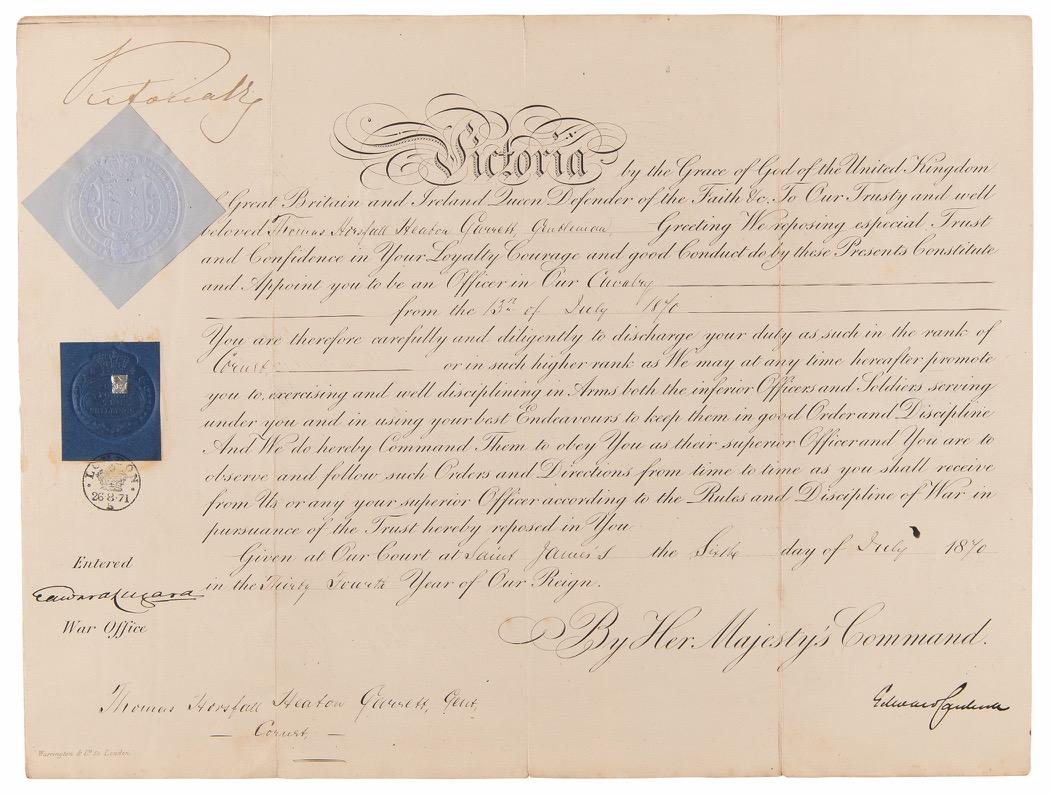 Victoria R
Victoria by the Grace of God of the United Kingdom
of Great Britain and Ireland Queen Defender of the Faith &c. To Our Trusty and well
beloved Thomas Horsfall Heaton Garrett, Gentleman, Greeting We reposing especial Trust
and Confidence in Your Loyalty Courage and good Conduct do by these Presents Constitute
and Appoint you to be an Officer in Our Cavalry
from the 13th of July 1870
You are therefore carefully and diligently to discharge your duty as such in the rank of
Cornet or in such higher rank as We may at any time hereafter promote
you to, exercising and well disciplining in Arms both the inferior Officers and Soldiers serving
under you and in using your best Endeavours to keep them in good Order and Discipline
And We do hereby Command Them to obey You as their superior Officer and You are to
observe and follow such Orders and Directions from time to time as you shall receive
from Us or any your superior Officer according to the Rules and Discipline of War in
pursuance of the Trust hereby reposed in You
Given at Our Court at Saint James's the Sixth day of July 1870
in the Thirty Fourth Year of Our Reign.
By Her Majesty's Command.
LONDON
26·8·71
Entered
Edward Lugard
War Office
Edward Cardwell
Thomas Horsfall Heaton Garrett, Gent,
Cornet,
Warrington & Co. St. London